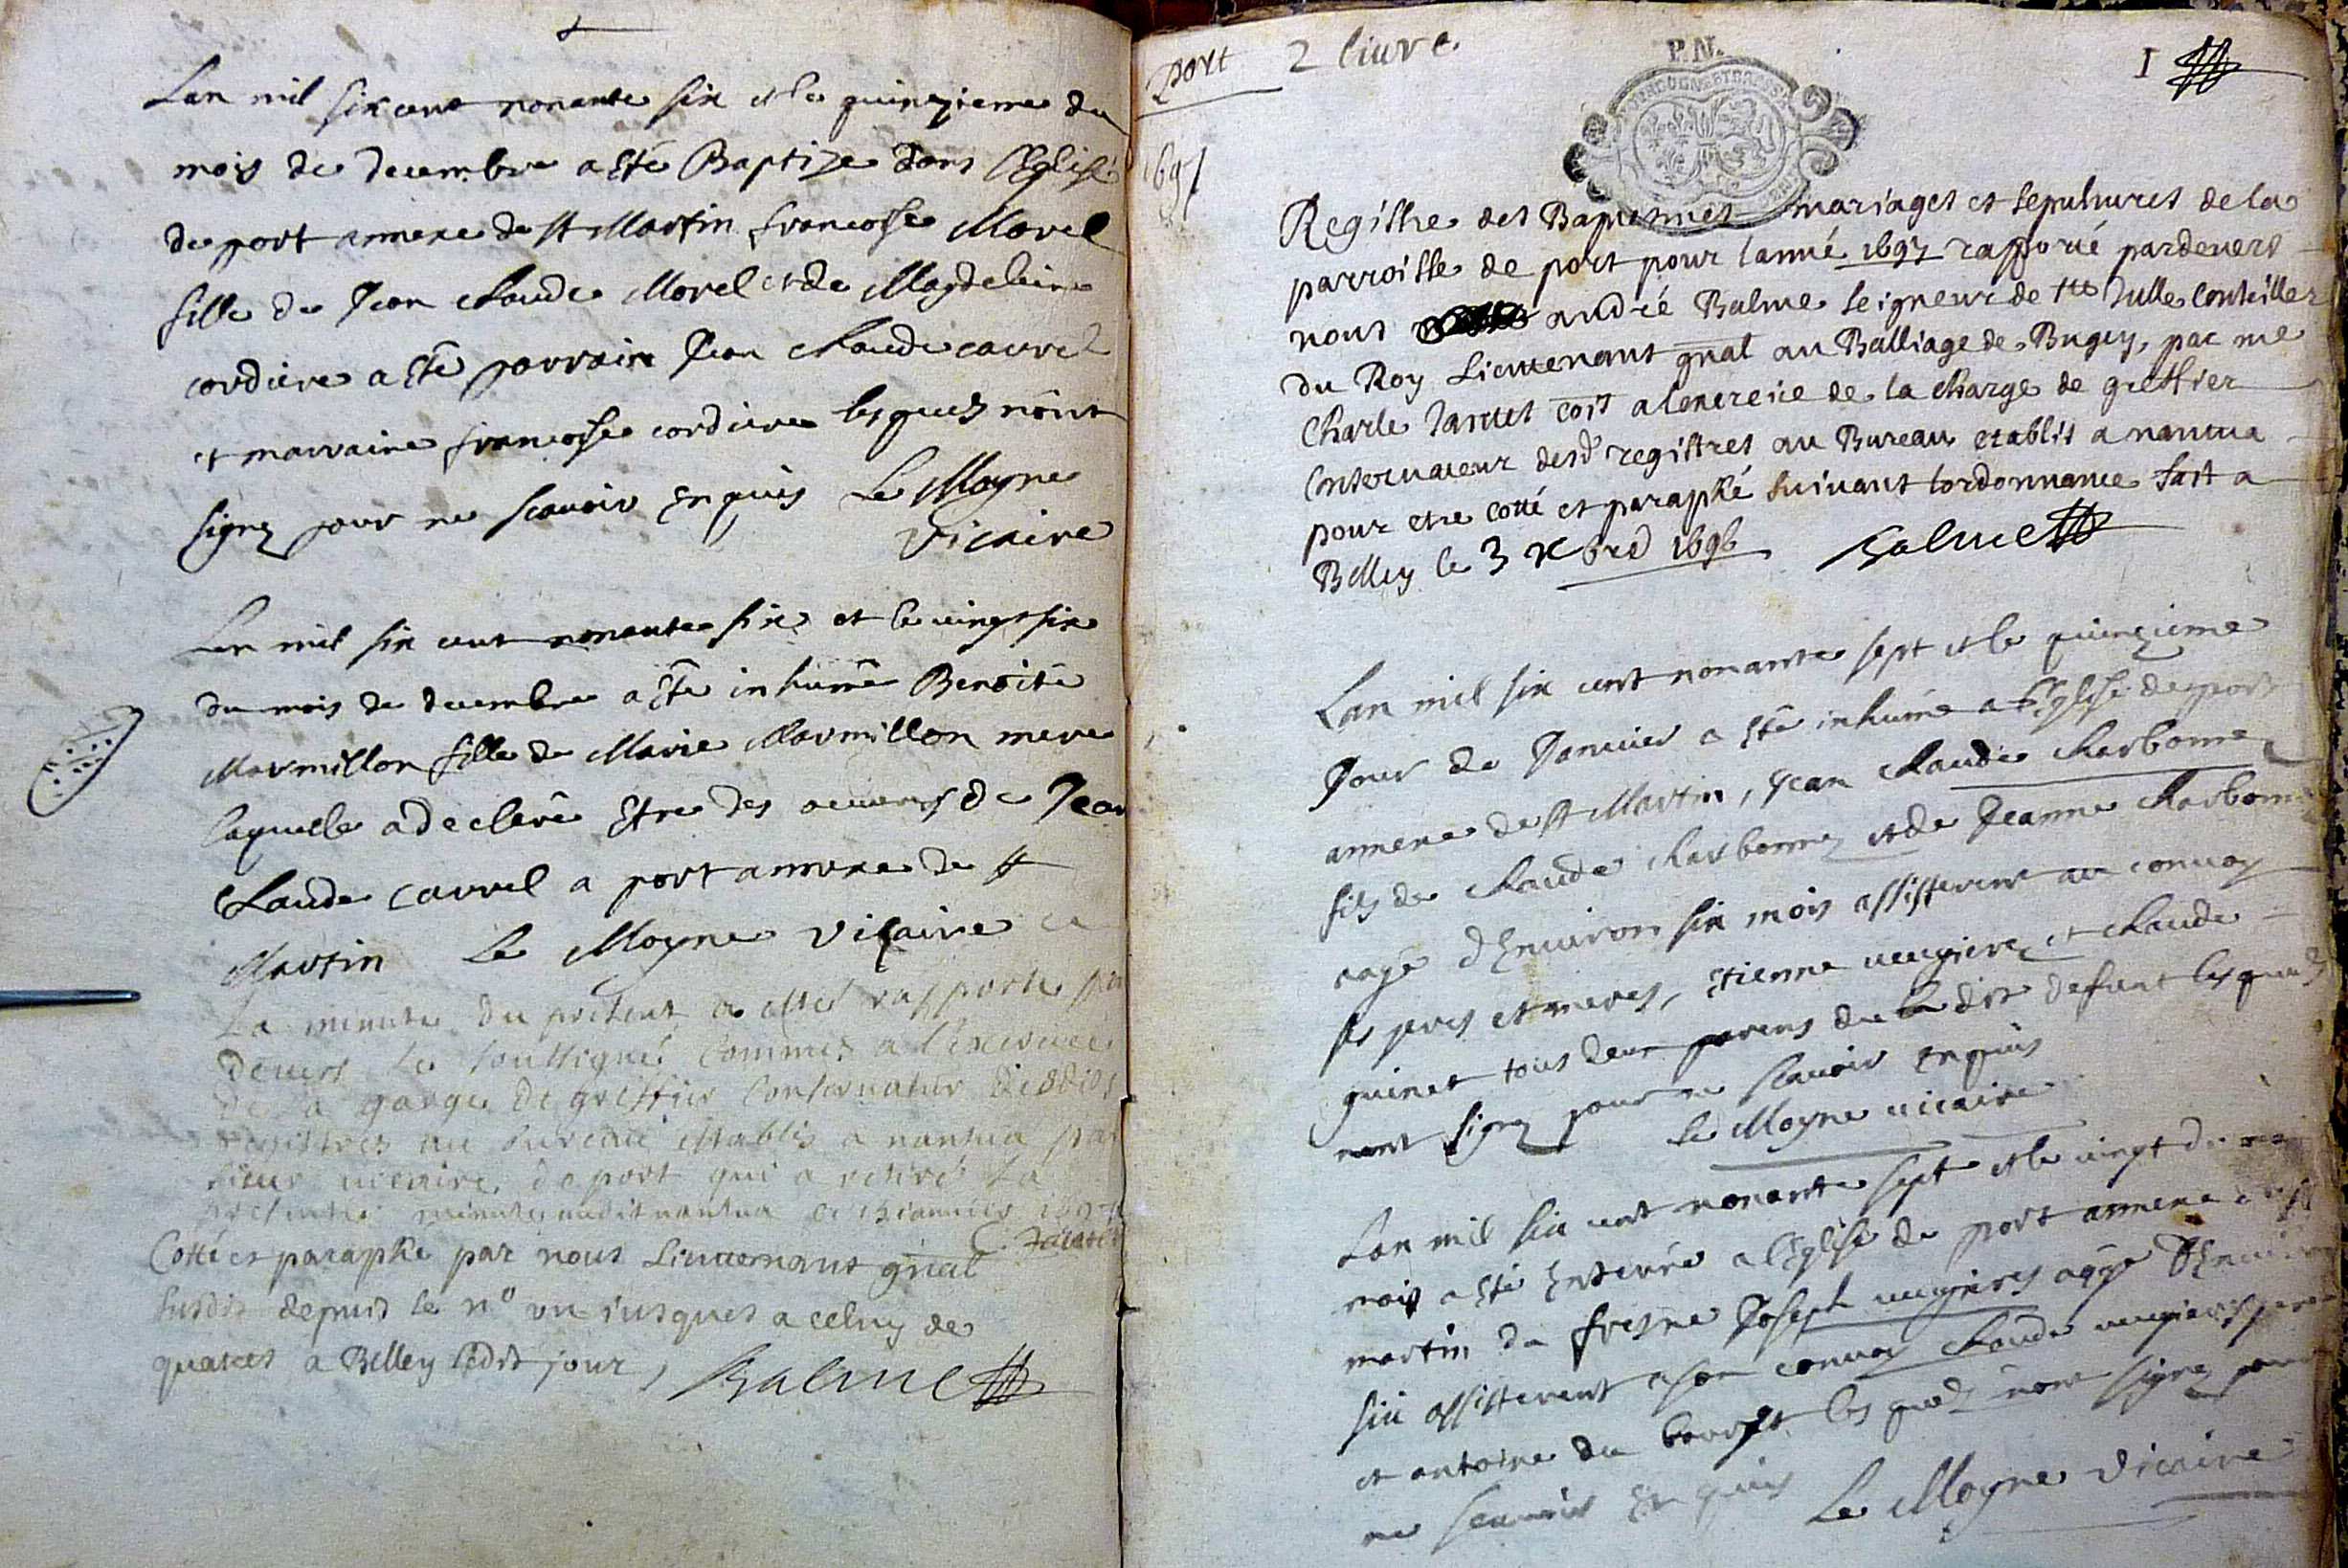 Lan mil six cent nonante six et le quinzieme du
mois de decembre a esté Baptize dans l'Eglise
de port annexe de st Martin francoise Morel
fille de Jean claude Morel et de Magdeleine
cordiere a esté parrain Jean claude carrel
et marraine francoise cordiere lesquels n'ont
signez pour ne scavoir Enquis Le Moyne
Vicaire
Lan mil six cent nonante six et le vingt six
du mois de decembre a esté inhumé Benoite
Marmillon fille de Marie Marmillon mere
laquelle a declaré Estre des oeuvres de Jean
Claude Carrel a port annexe de st
Martin Le Moyne Vicaire
La minute du present a ettez rapporte par
devers le soussigné Commis a l'exercice
de la garge de greffier Conservateur desdits
registres au bureau establis a nantua par
sieur vicaire de port qui a retiré la
presente minute audit nantua ce janvier
Cotté et paraphé par nous Lieutenant gnal
susdit depuis le no un jusques a celuy de
quatres a Belley ledit jour, Balme
port 2 livre. P.N. 1
1697
Registre des Baptesmes mariages et sepultures de la
parroisse de port pour lanné 1697 rapporté pardevers
nous andré Balme seigneur de ste Julle Conseiller
du Roy Lieutenant gnal au Balliage de Bugey, par me
Charle Jantet cois a lexercice de la charge de greffier
Conservateur desd registres au Bureau etablit a nantua
pour etre cotté et paraphé suivant lordonnance fait a
Belley le 3 xbre 1696 Balme
Lan mil six cent nonante sept et le quinzieme
Jour de Janvier a esté inhumé a l'Eglise de port
annexe de st Martin, Jean claude charbonnez
fils de claude charbonnez et de Jeanne charbonnez
aagé d'Environ six mois assisterent au convoy
ses peres et meres, Etienne et claude
guinet tous deux parens du dit defunt lesquels
nont signez pour ne scavoir enquis
Le Moyne vicaire
Lan mil six cent nonante sept et le vingt du
mois a esté Enterré a l'Eglise de port annexe de st
martin du fresne Joseph aagé d'Environ
six assisterent a son convoy claude
et antoine du lesquels nont signez pour
ne scavoir Enquis Le Moyne Vicaire